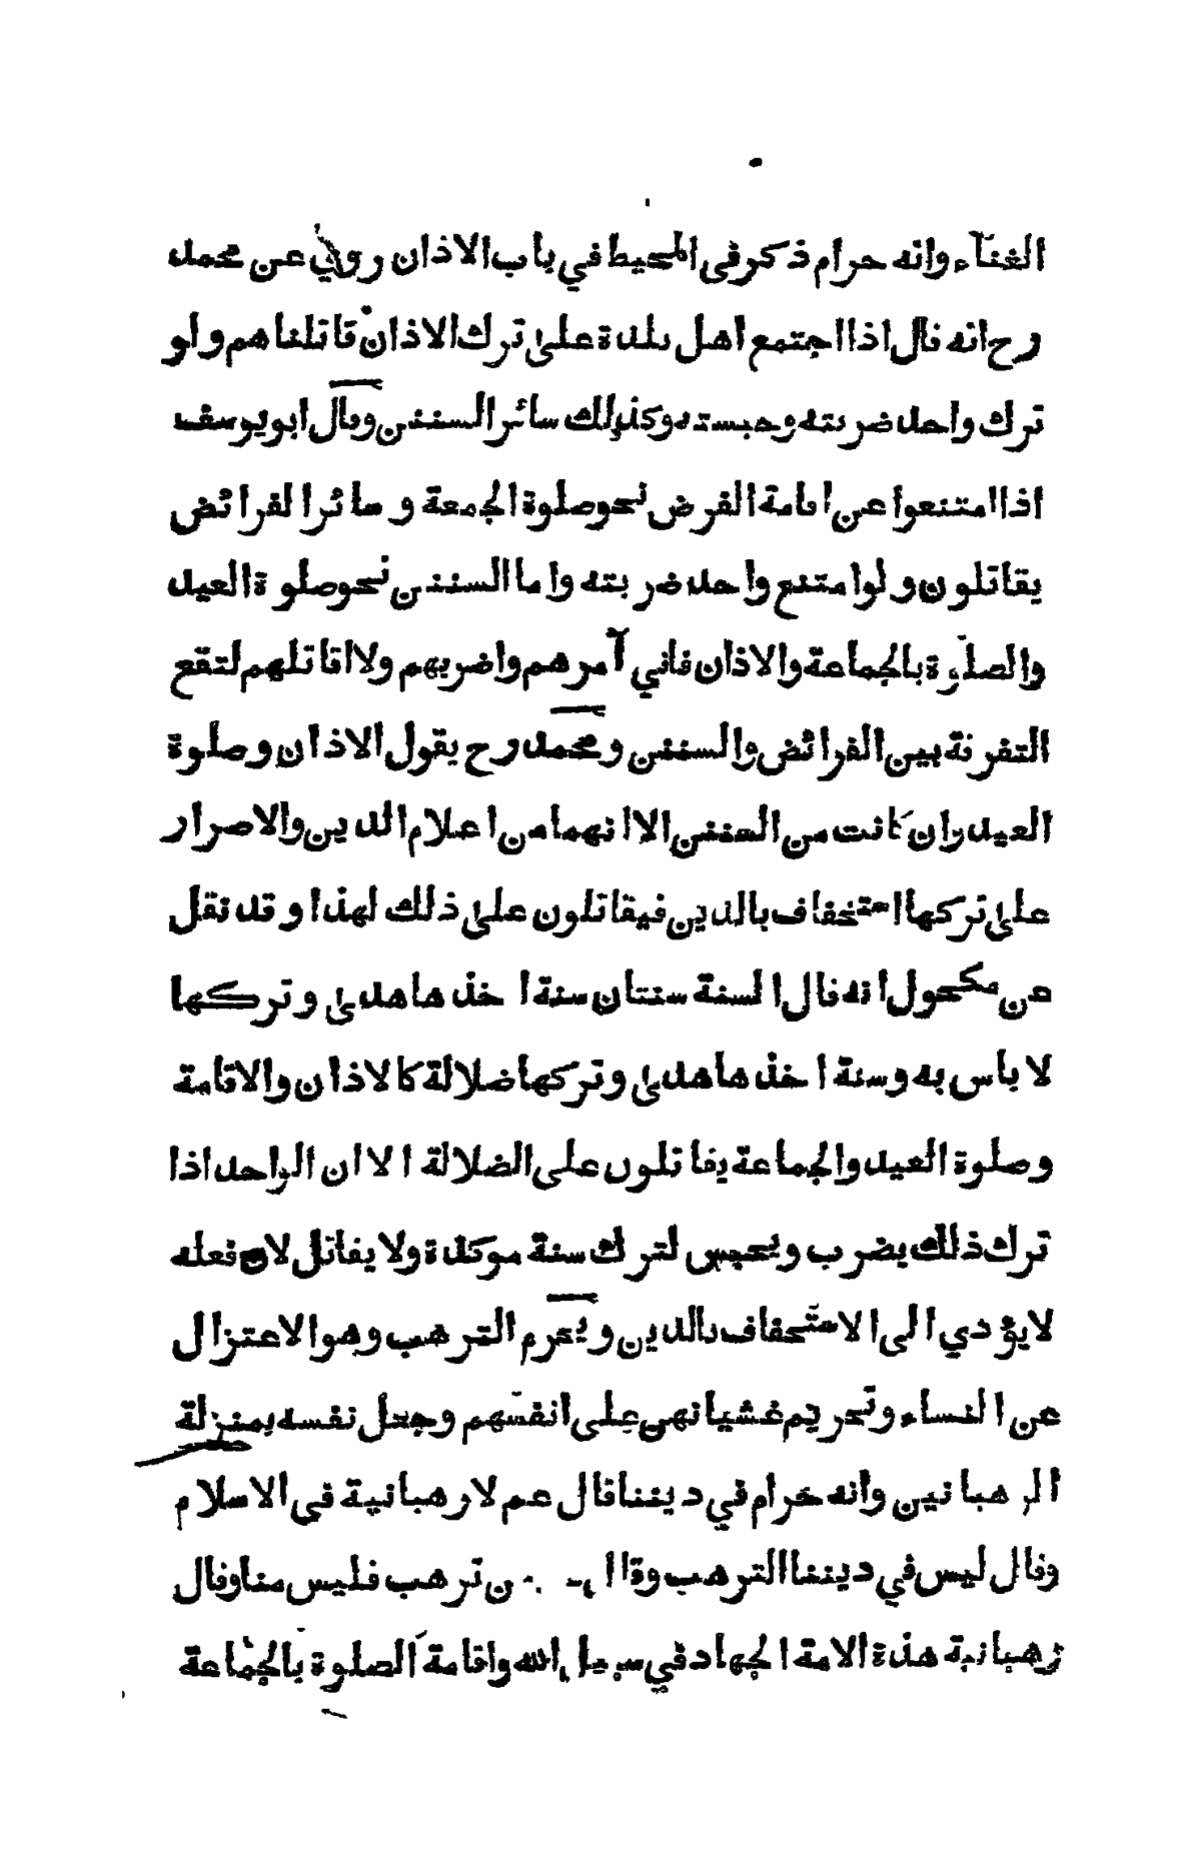 الغنآء وانه حرام ذكر فى المحيط في باب الاذان روي عن محمد
رح انه قال اذا اجتمع اهل بلدة على ترك الاذان قاتلناهم ولو
ترك واحد ضربته وحبسته وكذلك سائر السنن وقال ابو يوسف
اذا امتنعوا عن اقامة الفرض نحو صلوة الجمعة وسائر الفرائض
يقاتلون ولو امتنع واحد ضربته واما السنن نحو صلوة العيد
والصلوة بالجماعة والاذان فاني آمرهم واضربهم ولا اقاتلهم لتقع
التفرقة بين الفرائض والسنن ومحمد رح يقول الاذان وصلوة
العيد وان كانت من السنن الا انهما من اعلام الدين والاصرار
على تركها استخفاف بالدين فيقاتلون على ذلك لهذا وقد نقل
عن مكحول انه قال السنة سنتان سنة اخذها هدى وتركها
لا باس به وسنة اخذها هدى وتركها ضلالة كالاذان والاقامة
وصلوة العيد والجماعة يقاتلون على الضلالة الا ان الواحد اذا
ترك ذلك يضرب ويحبس لترك سنة موكدة ولا يقاتل لان فعله
لا يؤدي الى الاستخفاف بالدين ويحرم الترهب وهو الاعتزال
عن النساء وتحريم غشيانهن على انفسهم وجعل نفسه بمنزلة
الرهبانين وانه حرام في ديننا قال عم لا رهبانية فى الاسلام
وقال ليس في ديننا الترهب وقال من ترهب فليس منا وقال
رهبانية هذة الامة الجهاد في سبيل الله واقامة الصلوة بالجماعة